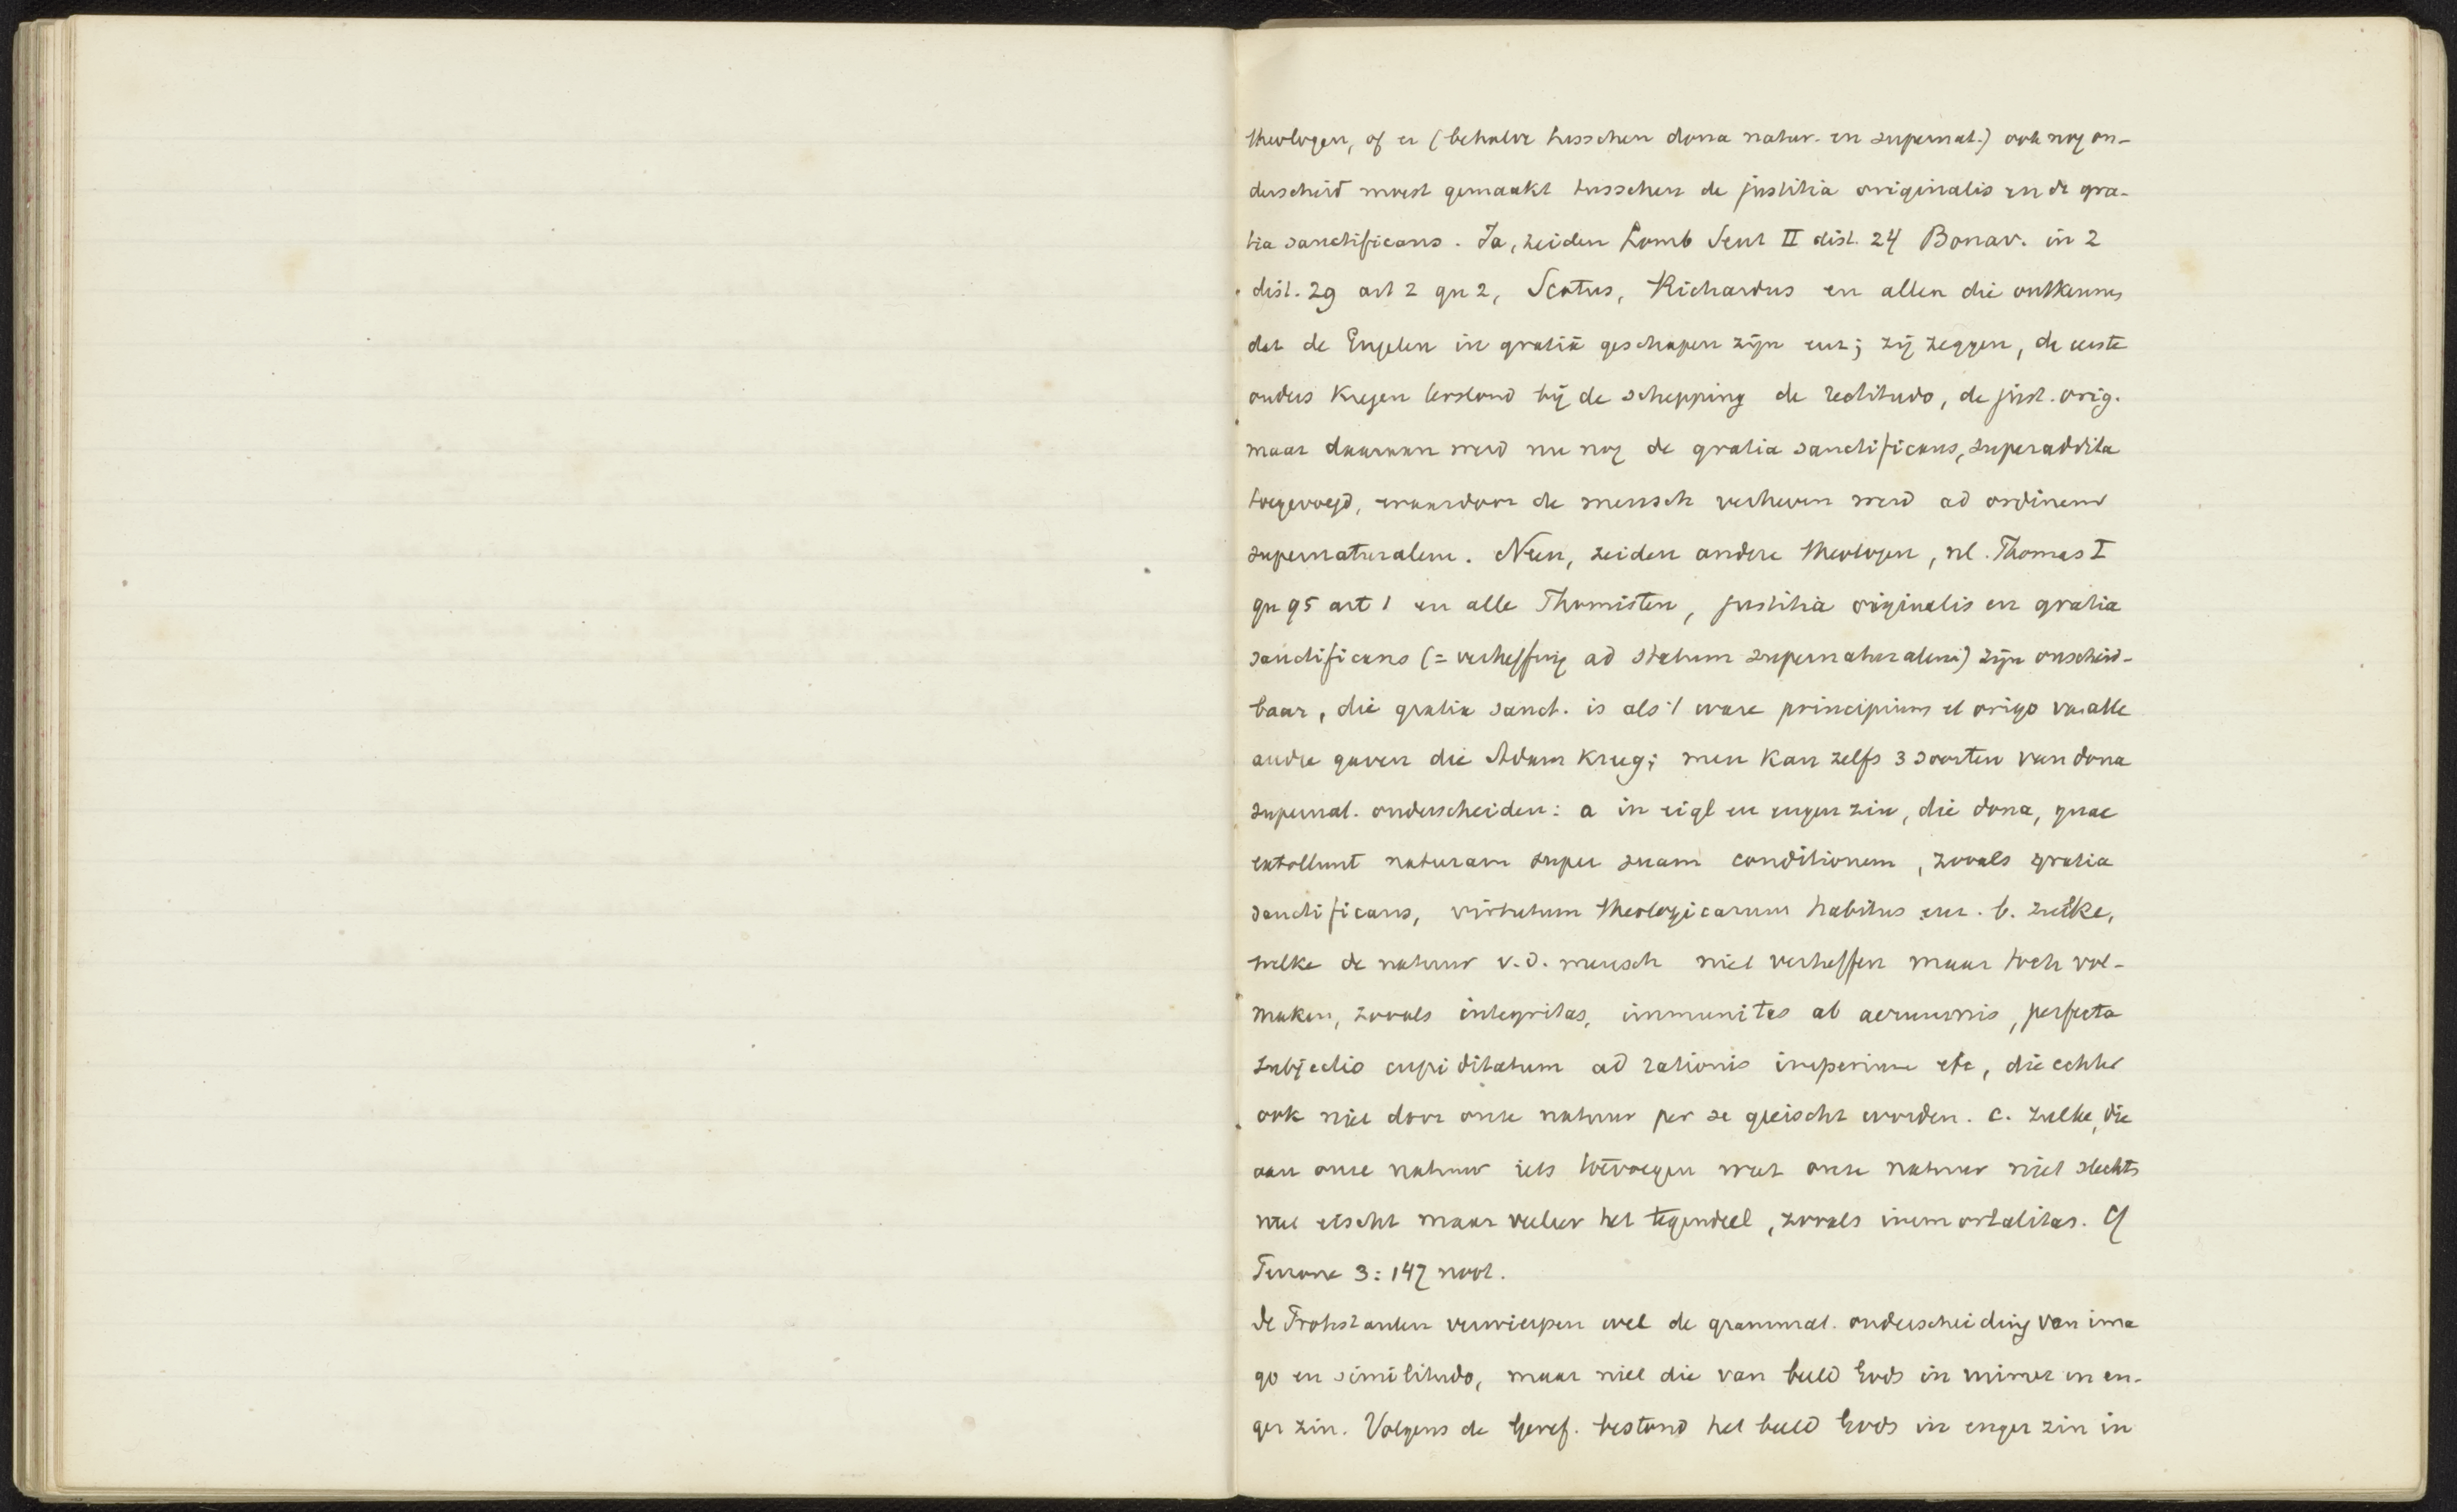 theologen, of er (behalve tusschen dona natur. en supernat.) ook nog on-
derscheid moest gemaakt tusschen de justitia originalis en de gra-
tia sanctificans. Ja, zeiden Lomb Sent II dist. 24 Bonav. in 2
dist. 29 art 2 qu 2, Scotus, Richardus en allen die ontkennen
dat de Engelen in gratiā geschapen zijn enz; zij zeggen, de eerste
ouders kregen terstond bij de schepping de rectitudo, de just. orig.
maar daaraan werd nu nog de gratia sanctificans, superaddita
toegevoegd, waardoor de mensch verheven werd ad ordinem
supernaturalem. Neen, zeiden andere theologen, nl. Thomas I
qu 95 art 1 en alle Thomisten, justitia originalis en gratia
sanctificans (= verheffing ad statum supernaturalem) zijn onscheid-
baar, die gratia sanct. is als 't ware principium et origo van alle
andre gaven die Adam kreeg; men kan zelfs 3 soorten van dona
supernat. onderscheiden: a in eigl en engen zin, die dona, quae
extollunt naturam super suam conditionem, zooals gratia
sanctificans, virtutum theologicarum habitus enz. b. zulke,
welke de natuur v.d. mensch niet verheffen maar toch vol-
maken, zooals integritas, immunitas ab aerumnis, perfecta
subjectio cupiditatum ad rationis imperium etc, die echter
ook niet door onze natuur per se geeischt worden. c. zulke, die
aan onze natuur iets toevoegen wat onze natuur niet slechts
niet eischt maar veeleer het tegendeel, zooals immortalitas. Cf
Perrone 3:147 noot.
De Protestanten verwierpen wel de grammat. onderscheiding van ima
go en similitudo, maar niet die van beeld Gods in ruimer en en-
ger zin. Volgens de Geref. bestond het beeld Gods in enger zin in